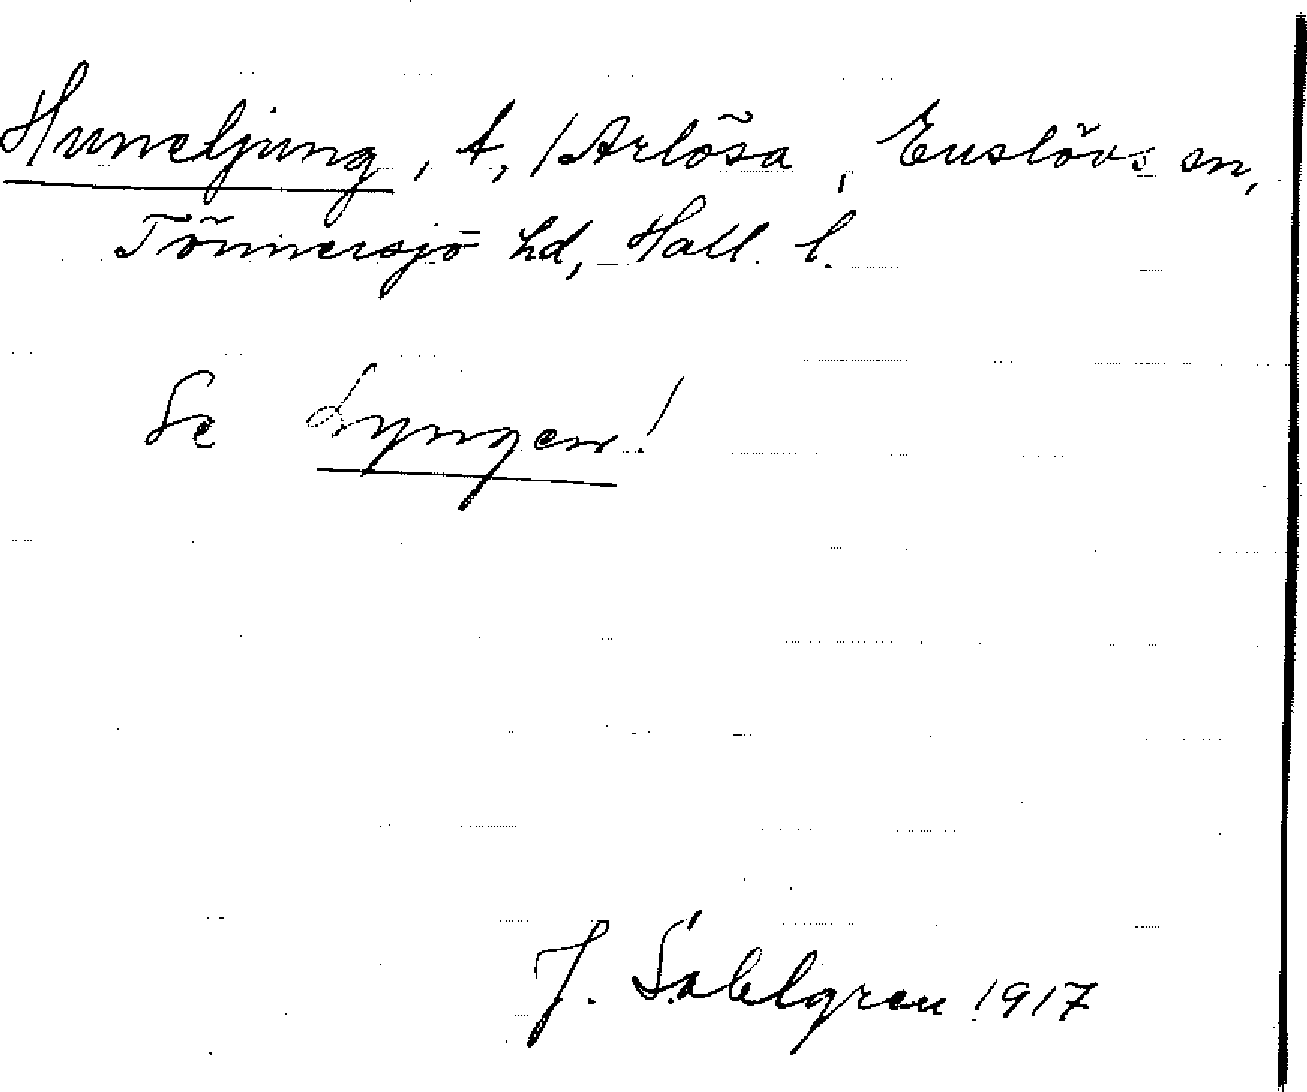 Huneljung, t, /Arlösa, Euslövs sn,
Tönnersjö hd, Hall. l.
Se Lyngen!
J. Sahlgren 1917